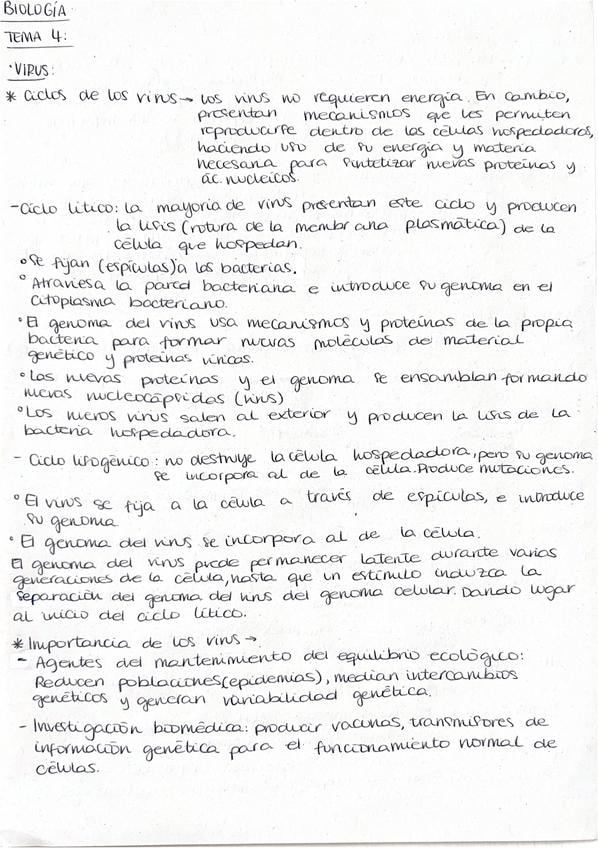 BIOLOGÍA
TEMA 4:
·VIRUS:
* Ciclos de los virus → los virus no requieren energía. En cambio,
presentan mecanismos que les permiten
reproducirse dentro de las células hospedadoras,
haciendo uso de su energía y materia
necesaria para sintetizar nuevas proteínas y
ác. nucleicos.
- Ciclo lítico: la mayoría de virus presentan este ciclo y producen
la lisis (rotura de la membrana plasmática) de la
célula que hospedan.
° Se fijan (espículas) a las bacterias.
° Atraviesa la pared bacteriana e introduce su genoma en el
citoplasma bacteriano.
° El genoma del virus usa mecanismos y proteínas de la propia
bacteria para formar nuevas moléculas de material
genético y proteínas víricas.
° Las nuevas proteínas y el genoma se ensamblan formando
nuevas nucleocápsidas (virus)
° Los nuevos virus salen al exterior y producen la lisis de la
bacteria hospedadora.
- Ciclo lisogénico: no destruye la célula hospedadora, pero su genoma
se incorpora al de la célula. Produce mutaciones.
° El virus se fija a la célula a través de espículas, e introduce
su genoma
° El genoma del virus se incorpora al de la célula.
El genoma del virus puede permanecer latente durante varias
generaciones de la célula, hasta que un estímulo induzca la
separación del genoma del virus del genoma celular. Dando lugar
al inicio del ciclo lítico.
* Importancia de los virus →
- Agentes del mantenimiento del equilibrio ecológico:
Reducen poblaciones (epidemias), median intercambios
genéticos y generan variabilidad genética.
- Investigación biomédica: producir vacunas, transmisores de
información genética para el funcionamiento normal de
células.